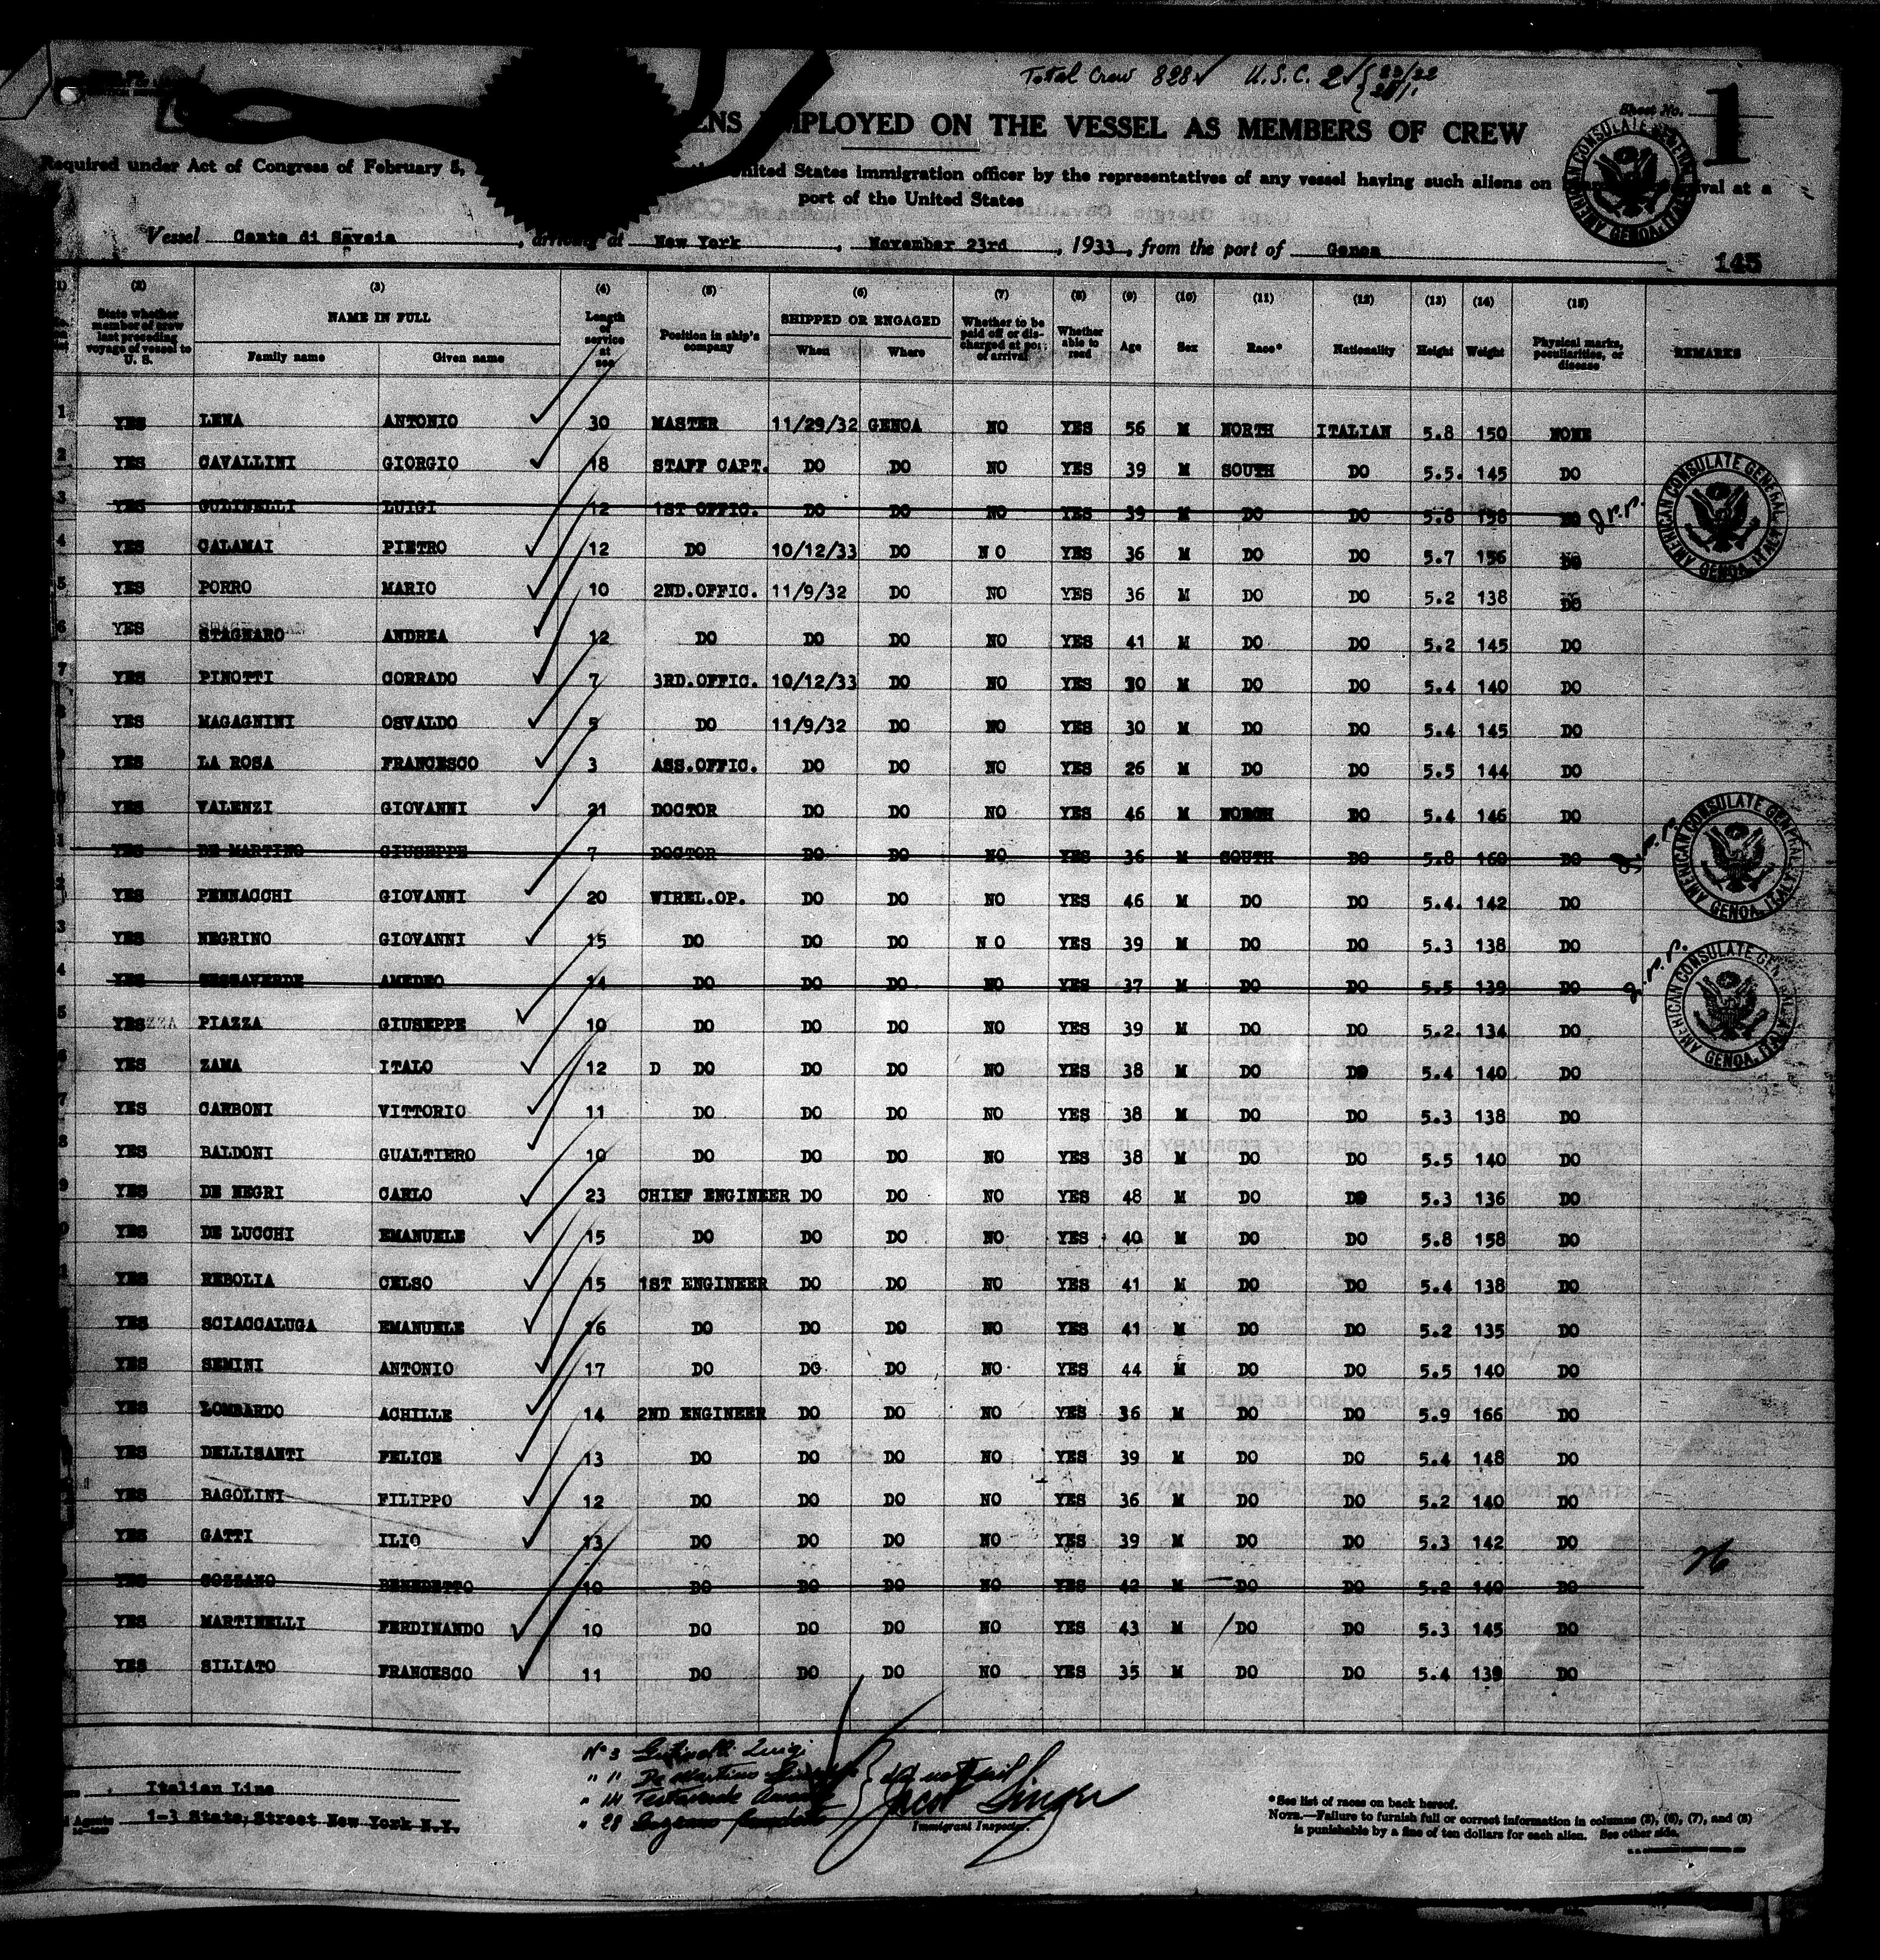 Total Crew 828 U.S.C. 2
Sheet No. 1
ENS EMPLOYED ON THE VESSEL AS MEMBERS OF CREW
Required under Act of Congress of February 5, United States immigration officer by the representatives of any vessel having such aliens on arrival at a
port of the United States
Vessel Conte di Savoia, arriving at New York, November 23rd, 1933, from the port of Genoa
145
(2) (3) (4) (5) (6) (7) (8) (9) (10) (11) (12) (13) (14) (15)
State whether member of crew last preceding voyage of vessel to U. S. NAME IN FULL Family name Given name Length of service at sea Position in ship's company SHIPPED OR ENGAGED When Where Whether to be paid off or discharged at port of arrival Whether able to read Age Sex Race* Nationality Height Weight Physical marks, peculiarities, or disease REMARKS
1 YES LENA ANTONIO 30 MASTER 11/29/32 GENOA NO YES 56 M NORTH ITALIAN 5.8 150 NONE
2 YES CAVALLINI GIORGIO 18 STAFF CAPT. DO DO NO YES 39 M SOUTH DO 5.5. 145 DO
3 YES GULINELLI LUIGI 12 1ST OFFIC. DO DO NO YES 39 M DO DO 5.8 158 DO J.r.r.
4 YES CALAMAI PIETRO 12 DO 10/12/33 DO N O YES 36 M DO DO 5.7 156 DO
5 YES PORRO MARIO 10 2ND.OFFIC. 11/9/32 DO NO YES 36 M DO DO 5.2 138 DO
6 YES STAGNARO ANDREA 12 DO DO DO NO YES 41 M DO DO 5.2 145 DO
7 YES PINOTTI CORRADO 7 3RD.OFFIC. 10/12/33 DO NO YES 30 M DO DO 5.4 140 DO
8 YES MAGAGNINI OSVALDO 5 DO 11/9/32 DO NO YES 30 M DO DO 5.4 145 DO
9 YES LA ROSA FRANCESCO 3 ASS.OFFIC. DO DO NO YES 26 M DO DO 5.5 144 DO
0 YES VALENZI GIOVANNI 21 DOCTOR DO DO NO YES 46 M NORTH DO 5.4 146 DO
1 YES DE MARTINO GIUSEPPE 7 DOCTOR DO DO NO YES 36 M SOUTH DO 5.8 160 DO
2 YES PENNACCHI GIOVANNI 20 WIREL.OP. DO DO NO YES 46 M DO DO 5.4. 142 DO
3 YES NEGRINO GIOVANNI 15 DO DO DO N O YES 39 M DO DO 5.3 138 DO
4 YES AMEDEO 14 DO DO DO NO YES 37 M DO DO 5.5 139 DO
5 YES PIAZZA GIUSEPPE 10 DO DO DO NO YES 39 M DO DO 5.2. 134 DO
6 YES ZAMA ITALO 12 D DO DO DO NO YES 38 M DO DO 5.4 140 DO
7 YES CARBONI VITTORIO 11 DO DO DO NO YES 38 M DO DO 5.3 138 DO
8 YES BALDONI GUALTIERO 10 DO DO DO NO YES 38 M DO DO 5.5 140 DO
9 YES DE NEGRI CARLO 23 CHIEF ENGINEER DO DO NO YES 48 M DO DO 5.3 136 DO
0 YES DE LUCCHI EMANUELE 15 DO DO DO NO YES 40 M DO DO 5.8 158 DO
1 YES REBOLIA CELSO 15 1ST ENGINEER DO DO NO YES 41 M DO DO 5.4 138 DO
YES SCIACCALUGA EMANUELE 16 DO DO DO NO YES 41 M DO DO 5.2 135 DO
YES SEMINI ANTONIO 17 DO DO DO NO YES 44 M DO DO 5.5 140 DO
YES LOMBARDO ACHILLE 14 2ND ENGINEER DO DO NO YES 36 M DO DO 5.9 166 DO
YES DELLISANTI FELICE 13 DO DO DO NO YES 39 M DO DO 5.4 148 DO
YES BAGOLINI FILIPPO 12 DO DO DO NO YES 36 M DO DO 5.2 140 DO
YES GATTI ILIO 13 DO DO DO NO YES 39 M DO DO 5.3 142 DO
YES BENEDETTO 10 DO DO DO NO YES 42 M DO DO 5.2 140 DO
YES MARTINELLI FERDINANDO 10 DO DO DO NO YES 43 M DO DO 5.3 145 DO
YES SILIATO FRANCESCO 11 DO DO DO NO YES 35 M DO DO 5.4 139 DO
26
AMERICAN CONSULATE GENERAL GENOA, ITALY
AMERICAN CONSULATE GENERAL GENOA, ITALY
AMERICAN CONSULATE GENERAL GENOA, ITALY
AMERICAN CONSULATE GENERAL GENOA, ITALY
N° 3 Gulinelli Luigi
" 11 De Martino
" 14
" 28
did not sail
Jacob Singer
Immigrant Inspector.
Italian Line
Agents 1-3 State, Street New York N.Y.
*See list of races on back hereof.
NOTE.—Failure to furnish full or correct information in columns (3), (6), (7), and (8)
is punishable by a fine of ten dollars for each alien. See other side.